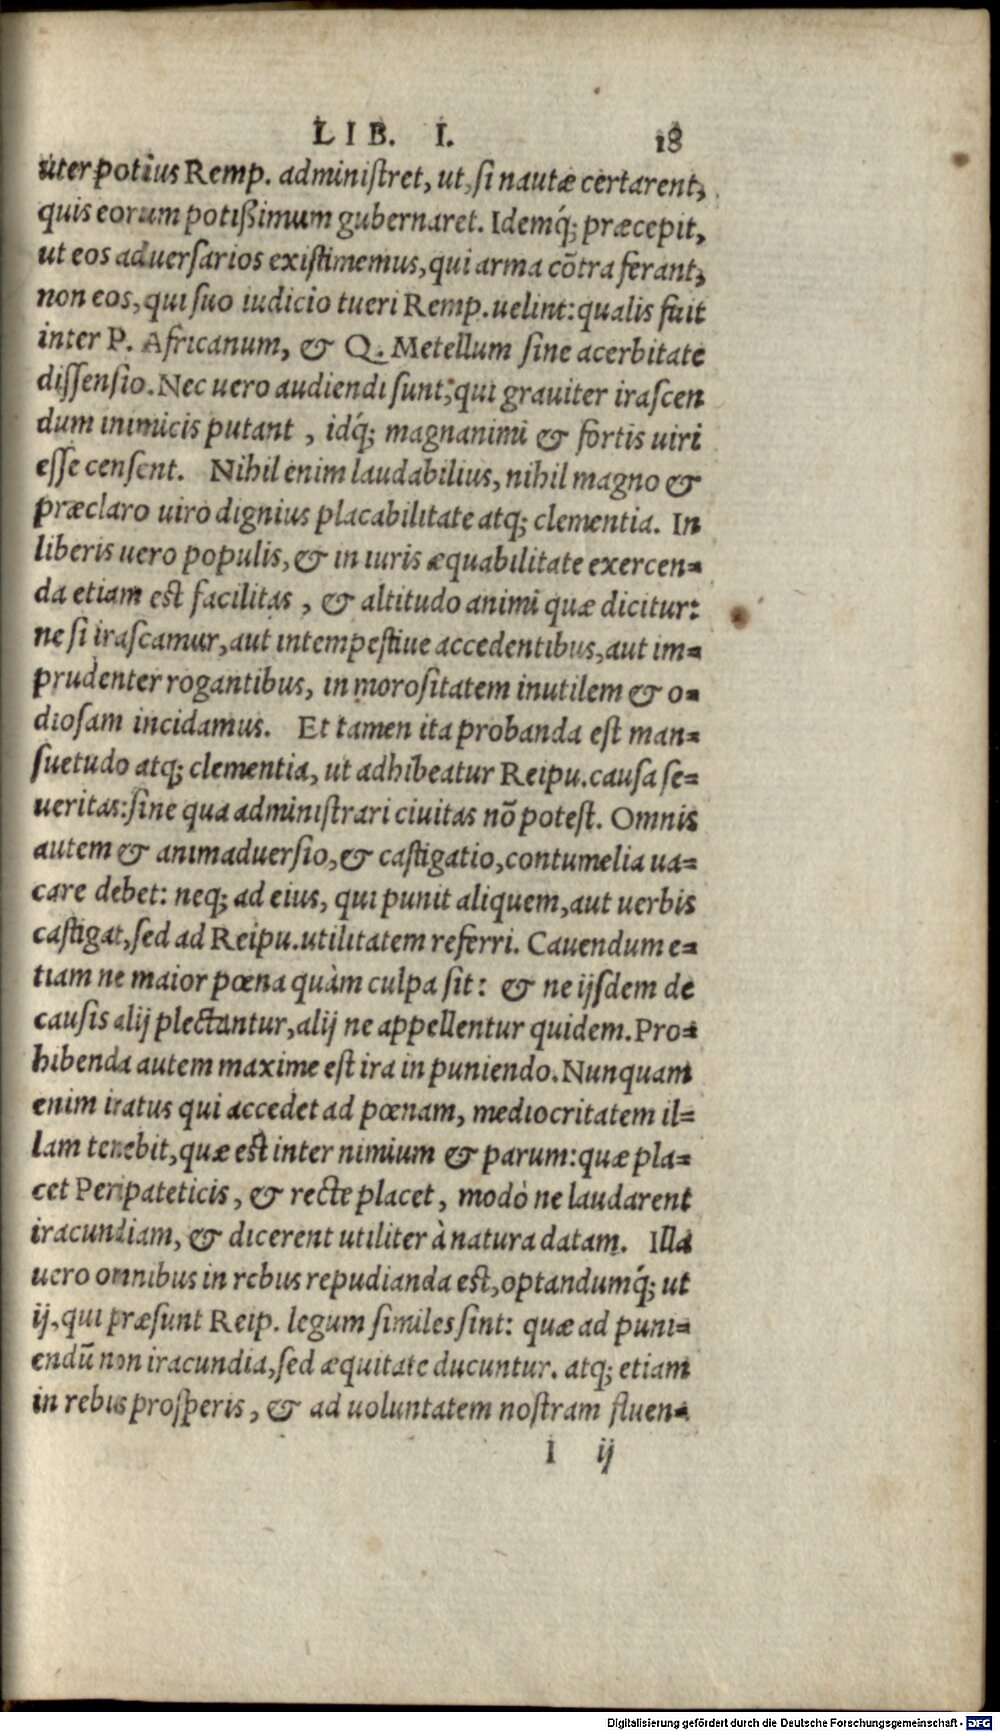 LIB. I. 18
uter potius Remp. administret, ut, si nautæ certarent,
quis eorum potißimum gubernaret. Idemq́; præcepit,
ut eos aduersarios existimemus, qui arma cõtra ferant,
non eos, qui suo iudicio tueri Remp. uelint: qualis fuit
inter P. Africanum, & Q. Metellum sine acerbitate
dissensio. Nec uero audiendi sunt, qui grauiter irascen
dum inimicis putant, idq́; magnanimi & fortis uiri
esse censent. Nihil enim laudabilius, nihil magno &
præclaro uiro dignius placabilitate atq; clementia. In
liberis uero populis, & in iuris æquabilitate exercen=
da etiam est facilitas, & altitudo animi quæ dicitur:
ne si irascamur, aut intempestiue accedentibus, aut im=
prudenter rogantibus, in morositatem inutilem & o=
diosam incidamus. Et tamen ita probanda est man=
suetudo atq; clementia, ut adhibeatur Reipu. causa se=
ueritas: sine qua administrari ciuitas nõ potest. Omnis
autem & animaduersio, & castigatio, contumelia ua=
care debet: neq; ad eius, qui punit aliquem, aut uerbis
castigat, sed ad Reipu. utilitatem referri. Cauendum e=
tiam ne maior pœna quàm culpa sit: & ne ijsdem de
causis alij plectantur, alij ne appellentur quidem. Pro=
hibenda autem maxime est ira in puniendo. Nunquam
enim iratus qui accedet ad pœnam, mediocritatem il=
lam tenebit, quæ est inter nimium & parum: quæ pla=
cet Peripateticis, & recte placet, modò ne laudarent
iracundiam, & dicerent utiliter à natura datam. Illa
uero omnibus in rebus repudianda est, optandumq́; ut
ij, qui præsunt Reip. legum similes sint: quæ ad puni=
endũ non iracundia, sed æquitate ducuntur. atq; etiam
in rebus prosperis, & ad uoluntatem nostram fluen=
I ij
Digitalisierung gefördert durch die Deutsche Forschungsgemeinschaft - DFG